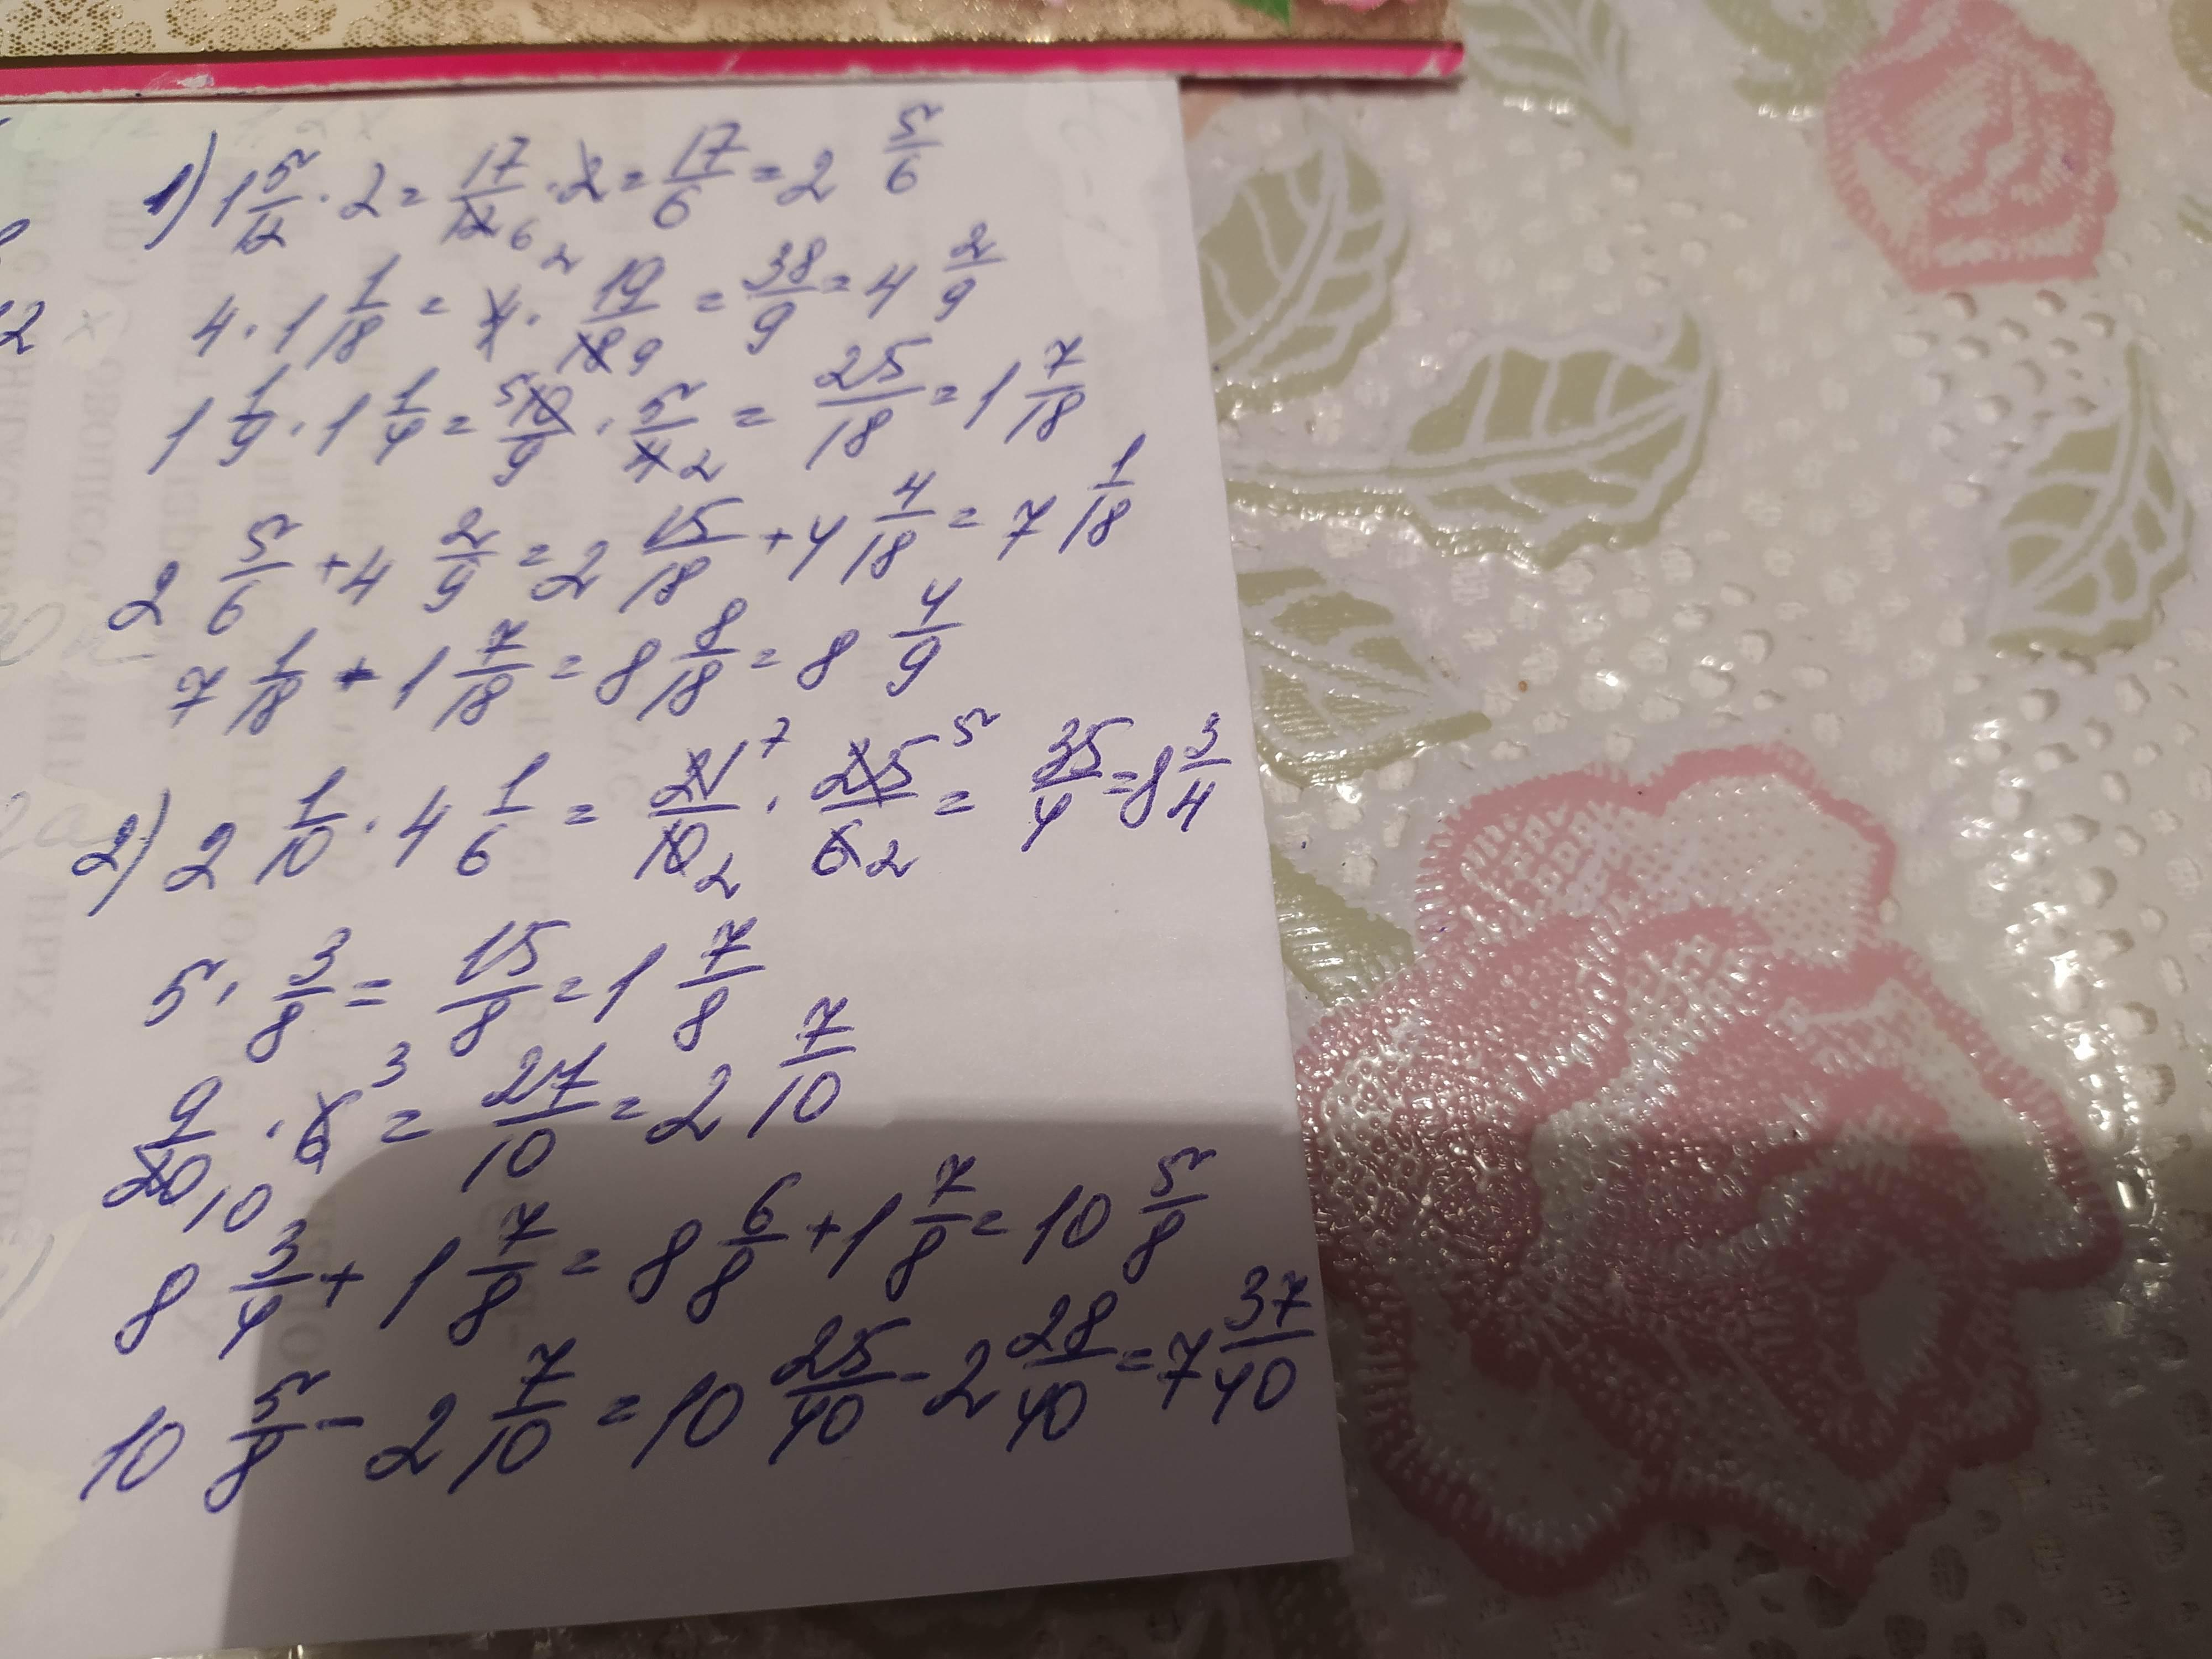 1) 1 5/12 · 2 = 17/12 6 · 2 = 17/6 = 2 5/6
4 · 1 1/18 = 4 2 · 19/18 9 = 38/9 = 4 2/9
1 1/9 · 1 1/4 = 5 10/9 · 5/4 2 = 25/18 = 1 7/18
2 5/6 + 4 2/9 = 2 15/18 + 4 4/18 = 7 1/18
7 1/18 + 1 7/18 = 8 8/18 = 8 4/9
2) 2 1/10 · 4 1/6 = 21 7/10 2 · 25 5/6 2 = 35/4 = 8 3/4
5 · 3/8 = 15/8 = 1 7/8
9/20 10 · 6 3 = 27/10 = 2 7/10
8 3/4 + 1 7/8 = 8 6/8 + 1 7/8 = 10 5/8
10 5/8 - 2 7/10 = 10 25/40 - 2 28/40 = 7 37/40